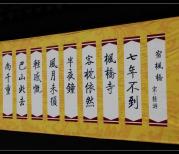 宿楓橋 宋 陸游
七年不到
楓橋寺
客枕依然
半夜鐘
風月未須
輕感慨
巴山此去
尚千重